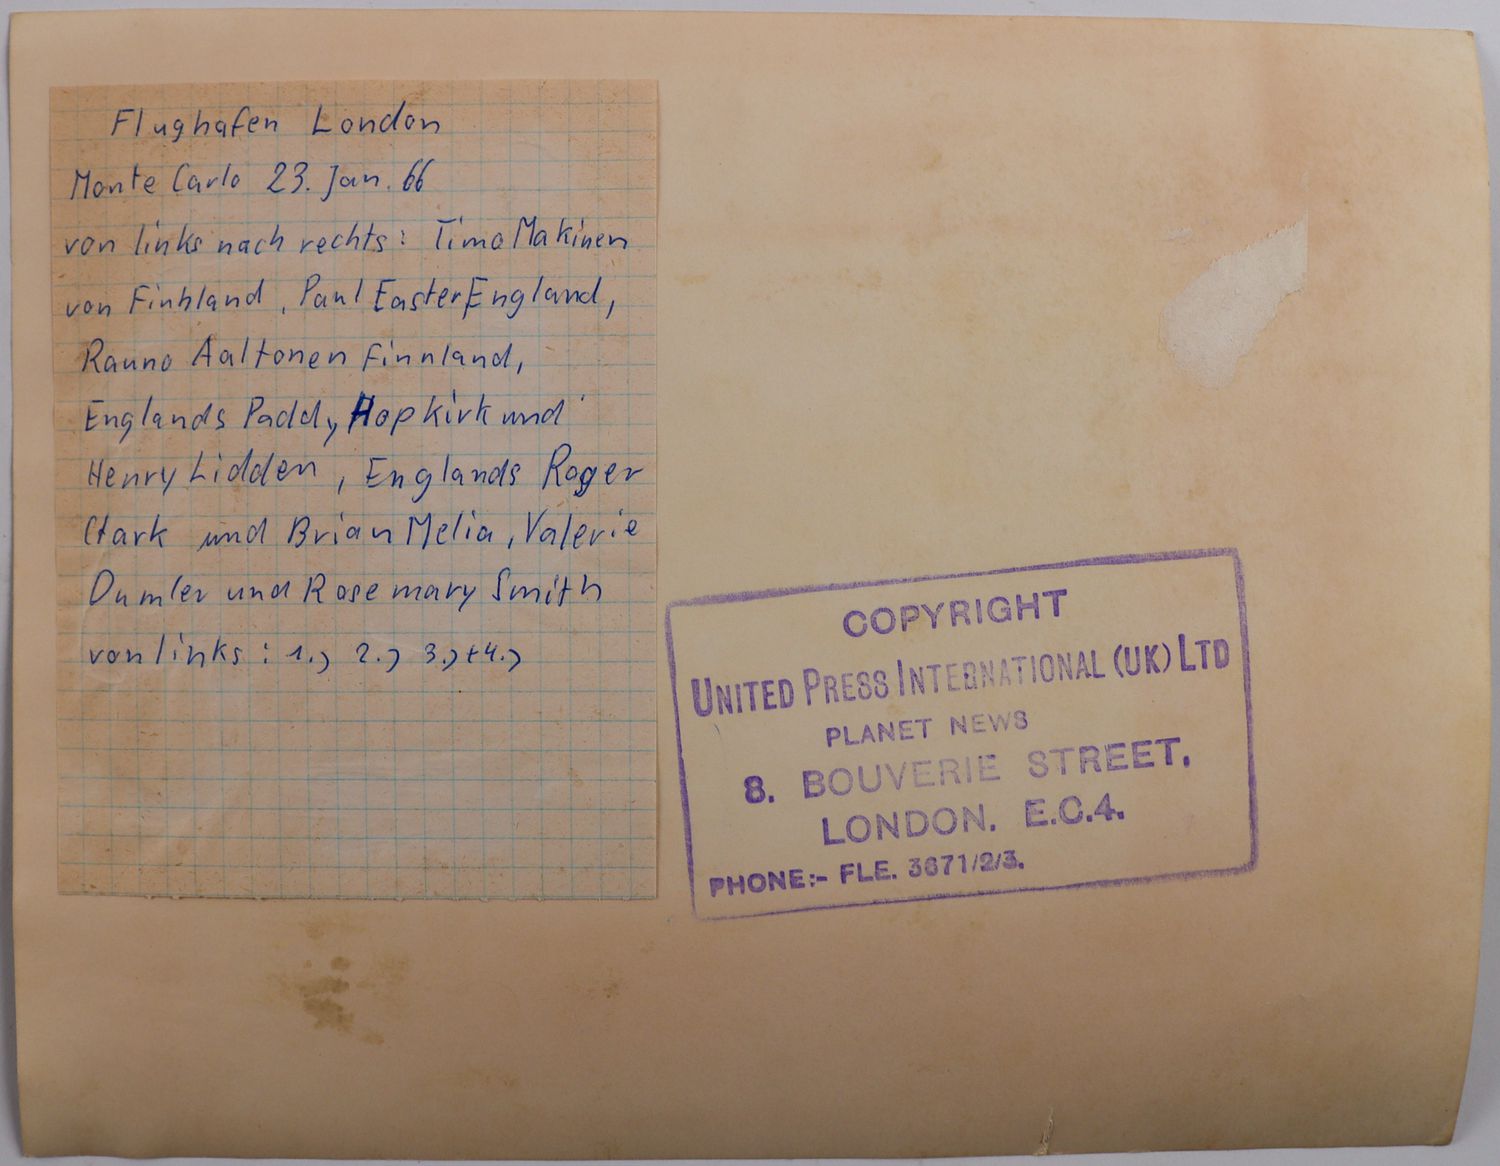 Flughafen London
Monte Carlo 23. Jan. 66
von links nach rechts: Timo Makinen
von Finnland, Paul Easter England,
Rauno Aaltonen Finnland,
Englands Paddy Hopkirk und
Henry Lidden, Englands Roger
Clark und Brian Melia, Valerie
Dumler und Rosemary Smith
von links: 1.) 2.) 3.) + 4.)
COPYRIGHT
UNITED PRESS INTERNATIONAL (UK) LTD
PLANET NEWS
8. BOUVERIE STREET.
LONDON. E.C.4.
PHONE:- FLE. 3671/2/3.